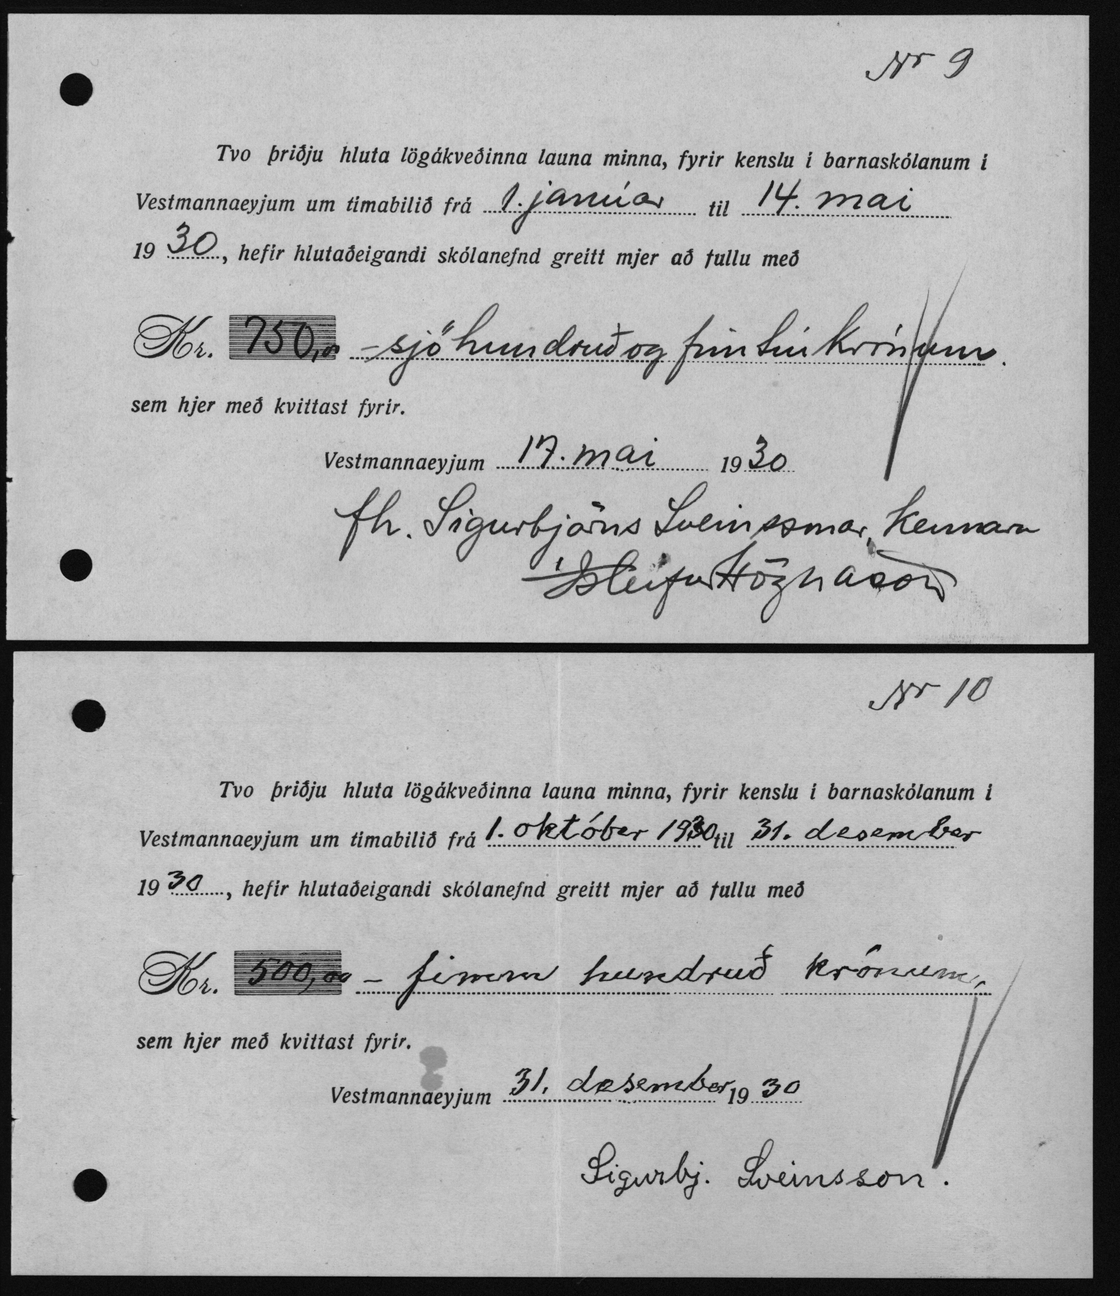 Nr 9
Tvo þriðju hluta lögákveðinna launa minna, fyrir kenslu í barnaskólanum í
Vestmannaeyjum um tímabilið frá 1. janúar til 14. mai
1930, hefir hlutaðeigandi skólanefnd greitt mjer að fullu með
Kr. 750,00 - sjö hundruð og fimtíu krónum.
sem hjer með kvittast fyrir.
Vestmannaeyjum 17. mai 1930
fh. Sigurbjörns Sveinssonar, kennara
Ísleifur Högnason
Nr 10
Tvo þriðju hluta lögákveðinna launa minna, fyrir kenslu í barnaskólanum í
Vestmannaeyjum um tímabilið frá 1. október 1930 til 31. desember
1930, hefir hlutaðeigandi skólanefnd greitt mjer að fullu með
Kr. 500,00 - fimm hundruð krónum,
sem hjer með kvittast fyrir.
Vestmannaeyjum 31. desember 1930
Sigurbj. Sveinsson.